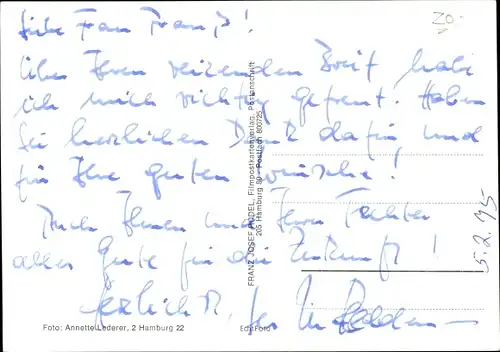 Liebe Frau Franz!
Über Ihren reizenden Brief habe
ich mich richtig gefreut. Haben
Sie herzlichen Dank dafür, und
für Ihre guten Wünsche!
Auch Ihnen und Ihrer Tochter
alles Gute für die Zukunft!
Herzlichst, Ihr
5.2.95
20.
FRANZ JOSEF RÜDEL, Filmpostkartenverlag,
205 Hamburg 80, Postfach 800725
Foto: Annette Lederer, 2 Hamburg 22